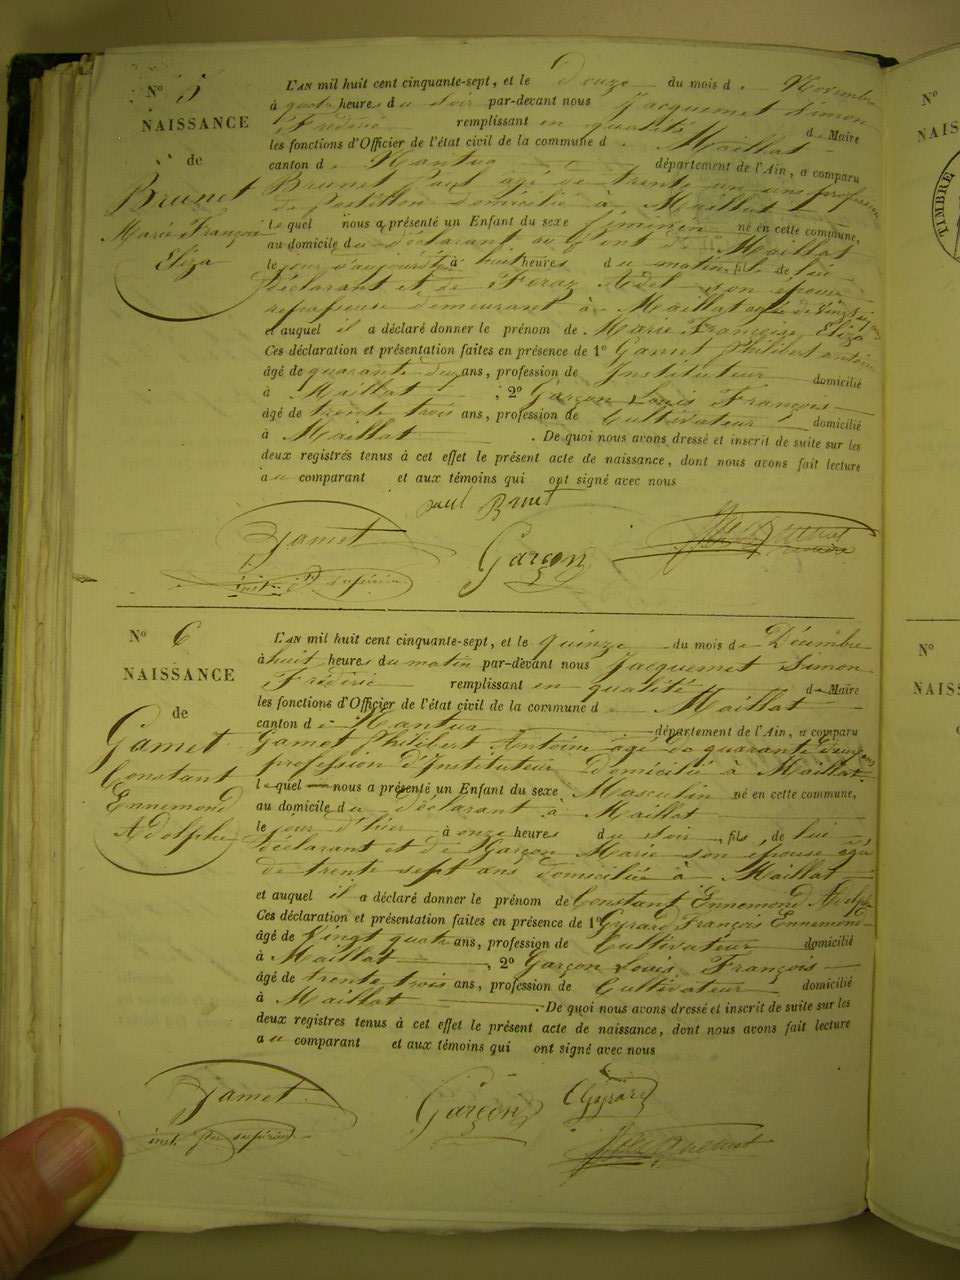 N° 5
NAISSANCE
de
Brunet
Marie Françoise
Eliza
L'AN mil huit cent cinquante-sept, et le Douze du mois d Novembre
à quatre heures du soir par-devant nous Jacquemet Simon
Fréderic remplissant en qualité de Maire
les fonctions d'Officier de l'état civil de la commune d Maillat
canton de Nantua département de l'Ain, a comparu
Brunet Paul agé de trente un ans profession
de Postillon domicilié à Maillat
lequel nous a présenté un Enfant du sexe féminin né en cette commune,
au domicile du déclarant Maillat
le jour d'aujourd'hui à huit heures du matin, fils de lui
déclarant et de Feraz Adel son épouse
repasseuse demeurant à Maillat agée de vingt six ans
et auquel il a déclaré donner le prénom de Marie Françoise Eliza
Ces déclaration et présentation faites en présence de 1° Gamet Philibert Antoine
âgé de quarante deux ans, profession de Instituteur domicilié
à Maillat ; 2° Garçon Louis François
âgé de trente trois ans, profession de Cultivateur domicilié
à Maillat . De quoi nous avons dressé et inscrit de suite sur les
deux registrés tenus à cet effet le présent acte de naissance, dont nous avons fait lecture
au comparant et aux témoins qui ont signé avec nous
paul Brunet
Gamet Garçon Jacquemet
inst. supérieur
N° 6
NAISSANCE
de
Gamet
Constant
Ennemond
Adolphe
L'AN mil huit cent cinquante-sept, et le quinze du mois de Décembre
à huit heures du matin par-devant nous Jacquemet Simon
Fréderic remplissant en qualité de Maire
les fonctions d'Officier de l'état civil de la commune d Maillat
canton de Nantua département de l'Ain, a comparu
Gamet Philibert Antoine âgé de quarante deux ans
profession d'Instituteur domicilié à Maillat
lequel nous a présenté un Enfant du sexe Masculin né en cette commune,
au domicile du déclarant à Maillat
le jour d'hier à onze heures du soir, fils de lui
déclarant et de Garçon Marie son épouse agée
de trente sept ans domiciliée à Maillat
et auquel il a déclaré donner le prénom de Constant Ennemond Adolphe
Ces déclaration et présentation faites en présence de 1° Gyrard François Ennemond
âgé de Vingt quatre ans, profession de Cultivateur domicilié
à Maillat , 2° Garçon Louis François
âgé de trente trois ans, profession de Cultivateur domicilié
à Maillat . De quoi nous avons dressé et inscrit de suite sur les
deux registres tenus à cet effet le présent acte de naissance, dont nous avons fait lecture
au comparant et aux témoins qui ont signé avec nous
Gamet Garçon Gyrard
inst. supérieur Jacquemet
N°
NAISS
TIMBRE
N°
NAISS